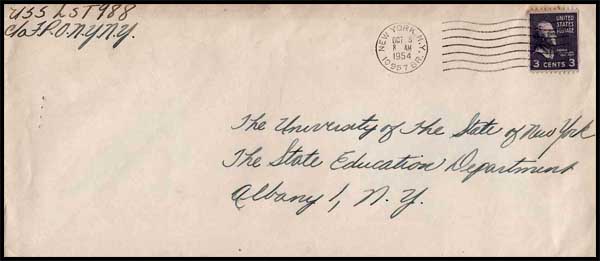 USS LST 988
C/o F.P.O. N.Y. N.Y.
NEW YORK, N.Y.
OCT 5
8 AM
1954
10957 BR.
UNITED STATES POSTAGE
3 CENTS 3
The University of The State of New York
The State Education Department
Albany 1, N.Y.